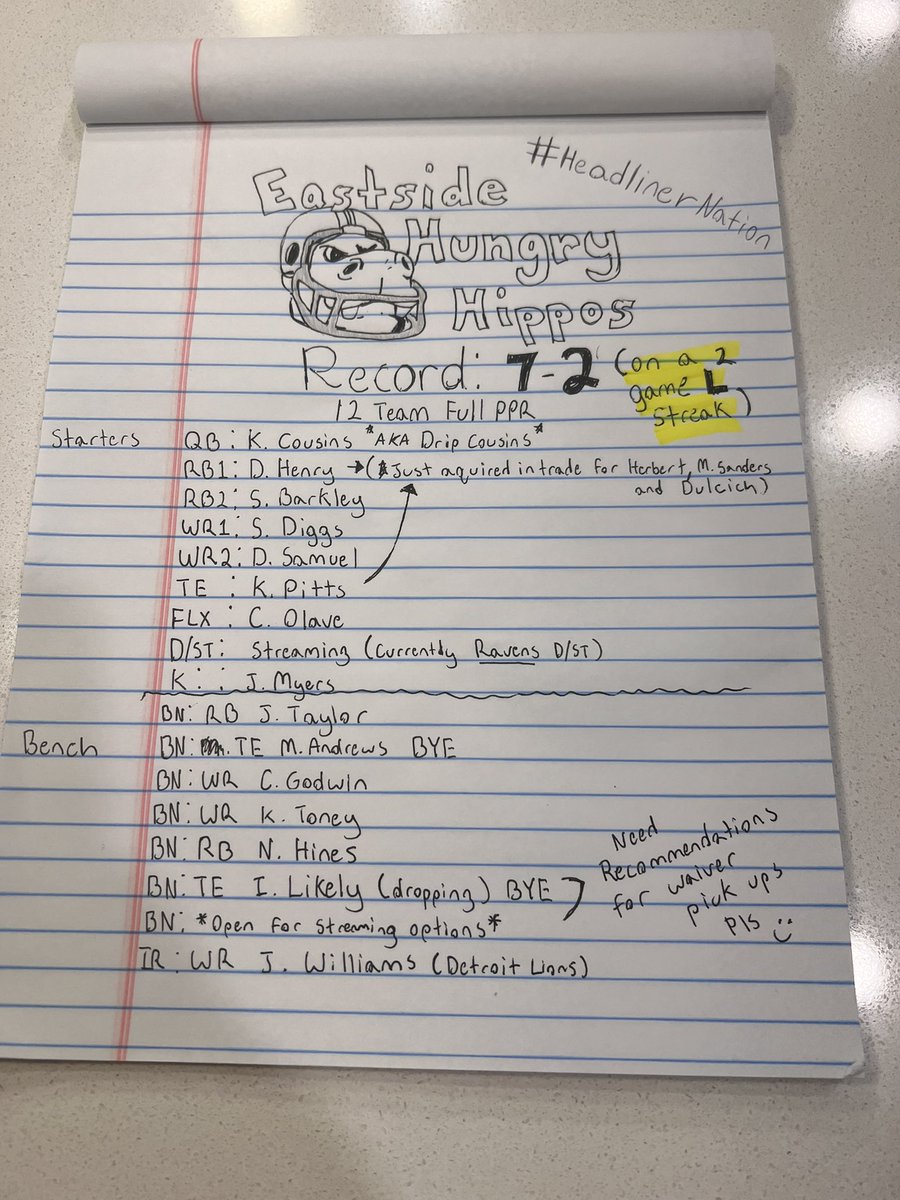 #HeadlinerNation
Eastside
Hungry
Hippos
Record: 7-2 (on a 2
game L
streak)
12 Team Full PPR
Starters QB: K. Cousins *AKA Drip Cousins*
RB1: D. Henry → (Just aquired in trade for Herbert, M. Sanders
and Dulcich)
RB2: S. Barkley
WR1: S. Diggs
WR2: D. Samuel
TE : K. Pitts
FLX : C. Olave
D/ST: Streaming (Currently Ravens D/ST)
K: : J. Myers
BN: RB J. Taylor
Bench BN: TE M. Andrews BYE
BN: WR C. Godwin
BN: WR K. Toney
BN: RB N. Hines
BN: TE I. Likely (dropping) BYE
BN: *Open for streaming options*
Need
Recommendations
for waiver
pick ups
pls
IR: WR J. Williams (Detroit Lions)